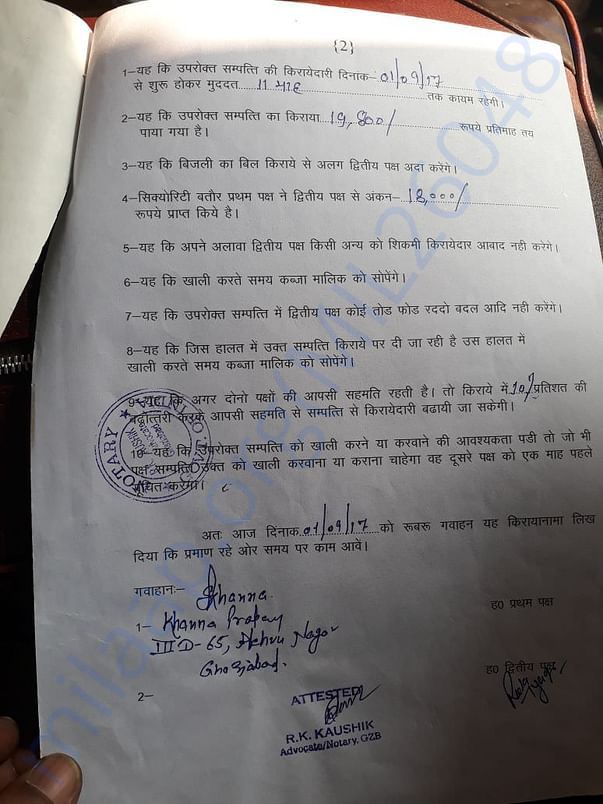 {2}
1–यह कि उपरोक्त सम्पत्ति की किरायेदारी दिनाक–01/09/17
से शुरू होकर मुददत 11 माह तक कायम रहेगी।
2–यह कि उपरोक्त सम्पत्ति का किराया 19,800/ रूपये प्रतिमाह तय
पाया गया है।
3–यह कि बिजली का बिल किराये से अलग द्वितीय पक्ष अदा करेगे।
4–सिक्योरिटी बतौर प्रथम पक्ष ने द्वितीय पक्ष से अंकन–18,000/
रूपये प्राप्त किये है।
5–यह कि अपने अलावा द्वितीय पक्ष किसी अन्य को शिकमी किरायेदार आबाद नही करेगे।
6–यह कि खाली करते समय कब्जा मालिक को सोपेंगे।
7–यह कि उपरोक्त सम्पत्ति में द्वितीय पक्ष कोई तोड फोड रददो बदल आदि नही करेंगे।
8–यह कि जिस हालत में उक्त सम्पत्ति किराये पर दी जा रही है उस हालत में
खाली करते समय कब्जा मालिक को सोपेंगे।
9–यह कि अगर दोनो पक्षों की आपसी सहमति रहती है। तो किराये में 10% प्रतिशत की
बढ़ोत्तरी करके आपसी सहमति से सम्पत्ति से किरायेदारी बढायी जा सकेगी।
10–यह कि उपरोक्त सम्पत्ति को खाली करने या करवाने की आवश्यकता पडी तो जो भी
पक्ष सम्पत्ति उक्त को खाली करवाना या कराना चाहेगा वह दूसरे पक्ष को एक माह पहले
सूचित करेगा।
NOTARY
अतः आज दिनांक 01/09/17 को रूबरू गवाहन यह किरायानामा लिख
दिया कि प्रमाण रहे ओर समय पर काम आवें।
गवाहानः–
Khanna
ह0 प्रथम पक्ष
1– Khanna
III D-65, Nehru Nagar
Ghaziabad.
ह0 द्वितीय पक्ष
2–
ATTESTED
R.K. KAUSHIK
Advocate/Notary, GZB
milaap.org/MIL26048